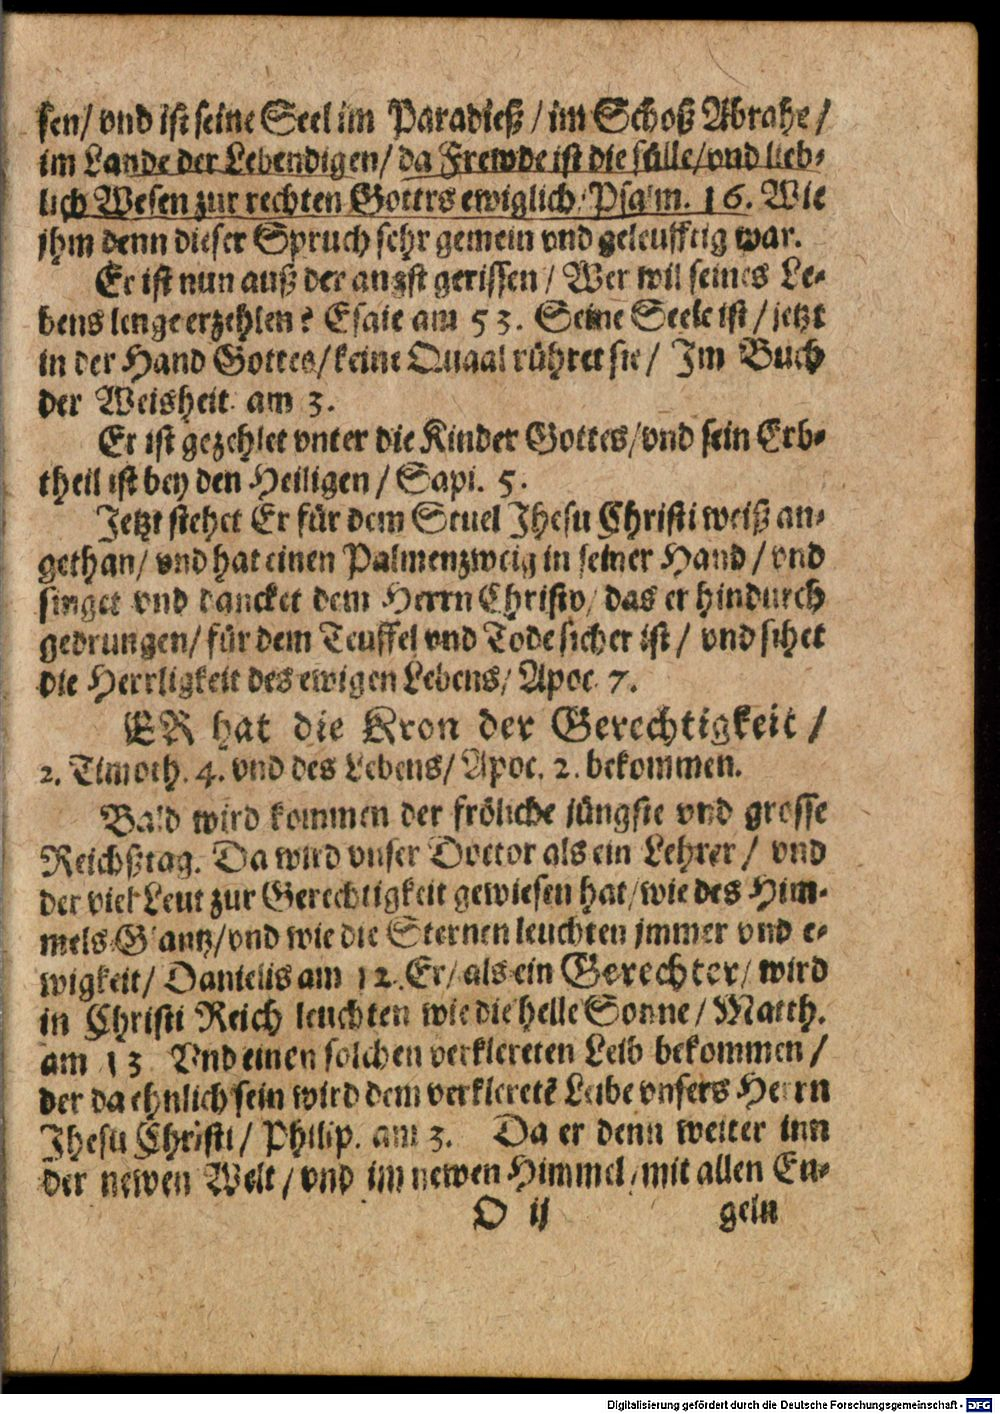 sen/ vnd ist seine Seel im Paradieß / im Schoß Abrahe /
im Lande der Lebendigen/ da Frewde ist die fülle/ vnd lieb-
lich Wesen zur rechten Gottes ewiglich/ Psalm. 16. Wie
jhm denn dieser Spruch sehr gemein vnd geleufftig war.
Er ist nun auß der angst gerissen / Wer wil seines Le-
bens lenge erzehlen? Esaie am 53. Seine Seele ist / jetzt
in der Hand Gottes/ keine Quaal rühret sie / Im Buch
der Weisheit am 3.
Er ist gezehlet vnter die Kinder Gottes/ vnd sein Erb-
theil ist bey den Heiligen / Sapi. 5.
Jetzt stehet Er für dem Stuel Jhesu Christi weiß an-
gethan/ vnd hat einen Palmenzweig in seiner Hand / vnd
singet vnd dancket dem Herrn Christo/ das er hindurch
gedrungen/ für dem Teuffel vnd Tode sicher ist / vnd sihet
die Herrligkeit des ewigen Lebens/ Apoc. 7.
ER hat die Kron der Gerechtigkeit /
2. Timoth. 4. vnd des Lebens/ Apoc. 2. bekommen.
Bald wird kommen der fröliche jüngste vnd grosse
Reichßtag. Da wird vnser Doctor als ein Lehrer / vnd
der viel Leut zur Gerechtigkeit gewiesen hat/ wie des Him-
mels Glantz/ vnd wie die Sternen leuchten jmmer vnd e-
wigkeit/ Danielis am 12. Er/ als ein Gerechter/ wird
in Christi Reich leuchten wie die helle Sonne / Matth.
am 13 Vnd einen solchen verklereten Leib bekommen /
der da ehnlich sein wird dem verkleretē Leibe vnsers Herrn
Jhesu Christi / Philip. am 3. Da er denn weiter inn
der newen Welt / vnd im newen Himmel/ mit allen En-
O ij geln
Digitalisierung gefördert durch die Deutsche Forschungsgemeinschaft - DFG